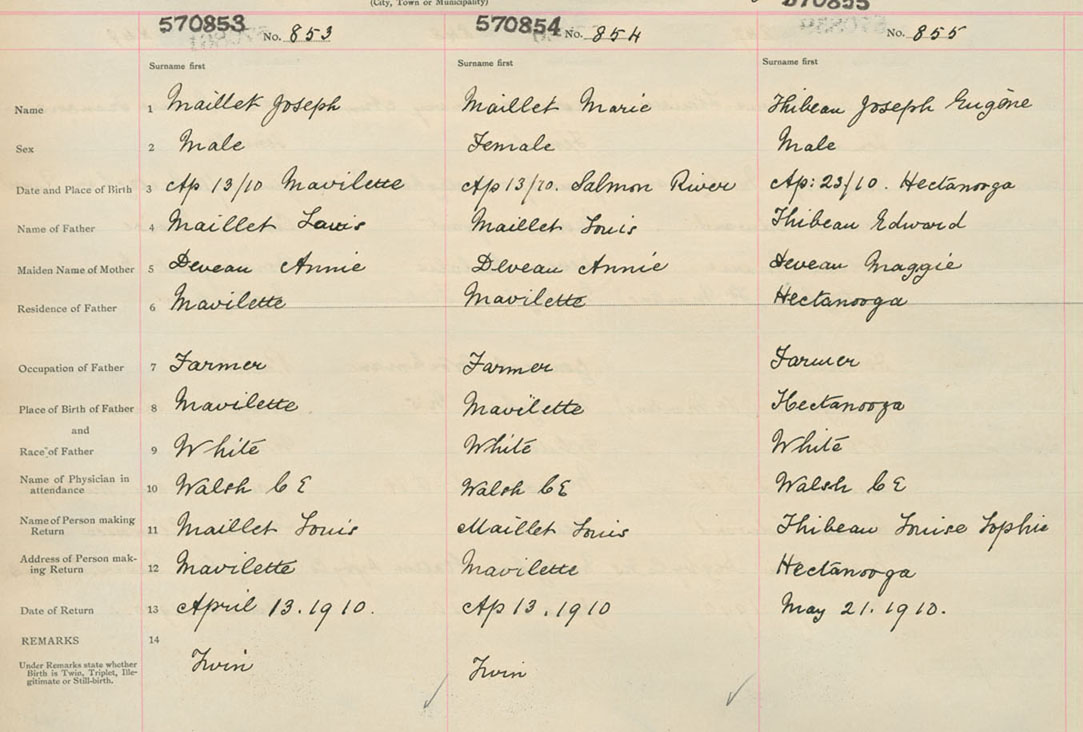 (City, Town or Municipality)
570853 No. 853 570854 No. 854 570855 No. 855
Surname first Surname first Surname first
Name 1 Maillet Joseph Maillet Marie Thibeau Joseph Eugène
Sex 2 Male Female Male
Date and Place of Birth 3 Ap 13/10 Mavilette Ap 13/10. Salmon River Ap: 23/10. Hectanooga
Name of Father 4 Maillet Louis Maillet Louis Thibeau Edward
Maiden Name of Mother 5 Deveau Annie Deveau Annie Deveau Maggie
Residence of Father 6 Mavilette Mavilette Hectanooga
Occupation of Father 7 Farmer Farmer Farmer
Place of Birth of Father 8 Mavilette Mavilette Hectanooga
and
Race of Father 9 White White White
Name of Physician in
attendance 10 Walsh C E Walsh C E Walsh C E
Name of Person making
Return 11 Maillet Louis Maillet Louis Thibeau Louise Sophie
Address of Person mak-
ing Return 12 Mavilette Mavilette Hectanooga
Date of Return 13 April 13. 1910. Ap 13, 1910 May 21. 1910.
REMARKS 14
Under Remarks state whether
Birth is Twin, Triplet, Ille-
gitimate or Still-birth.
Twin Twin